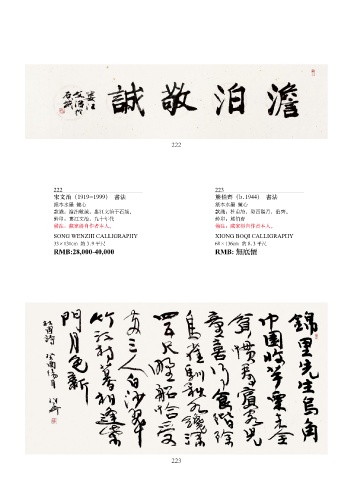 澹泊敬誠
婁江
文治於
石城
222
222
宋文治 (1919~1999) 書法
紙本水墨 鏡心
款識：澹泊敬誠。婁江文治于石城。
鈐印：婁江文治、九十年代
SONG WENZHI CALLIGRAPHY
35×136cm 約3.9平尺
RMB:28,000-40,000
223
熊伯齊 (b.1944) 書法
紙本水墨 鏡心
款識：杜甫詩，癸酉陽月，伯齊。
鈐印：熊伯齊
XIONG BOQI CALLIGRAPHY
68×136cm 約8.3平尺
RMB: 無底價
錦里先生烏角
巾園收芋栗未全
貧慣看賓客兒
童喜得食階除
鳥雀馴秋水纔深
四五尺野航恰受
兩三人白沙翠
竹江村暮相送柴
門月色新
杜甫詩 癸酉陽月 伯齊
223